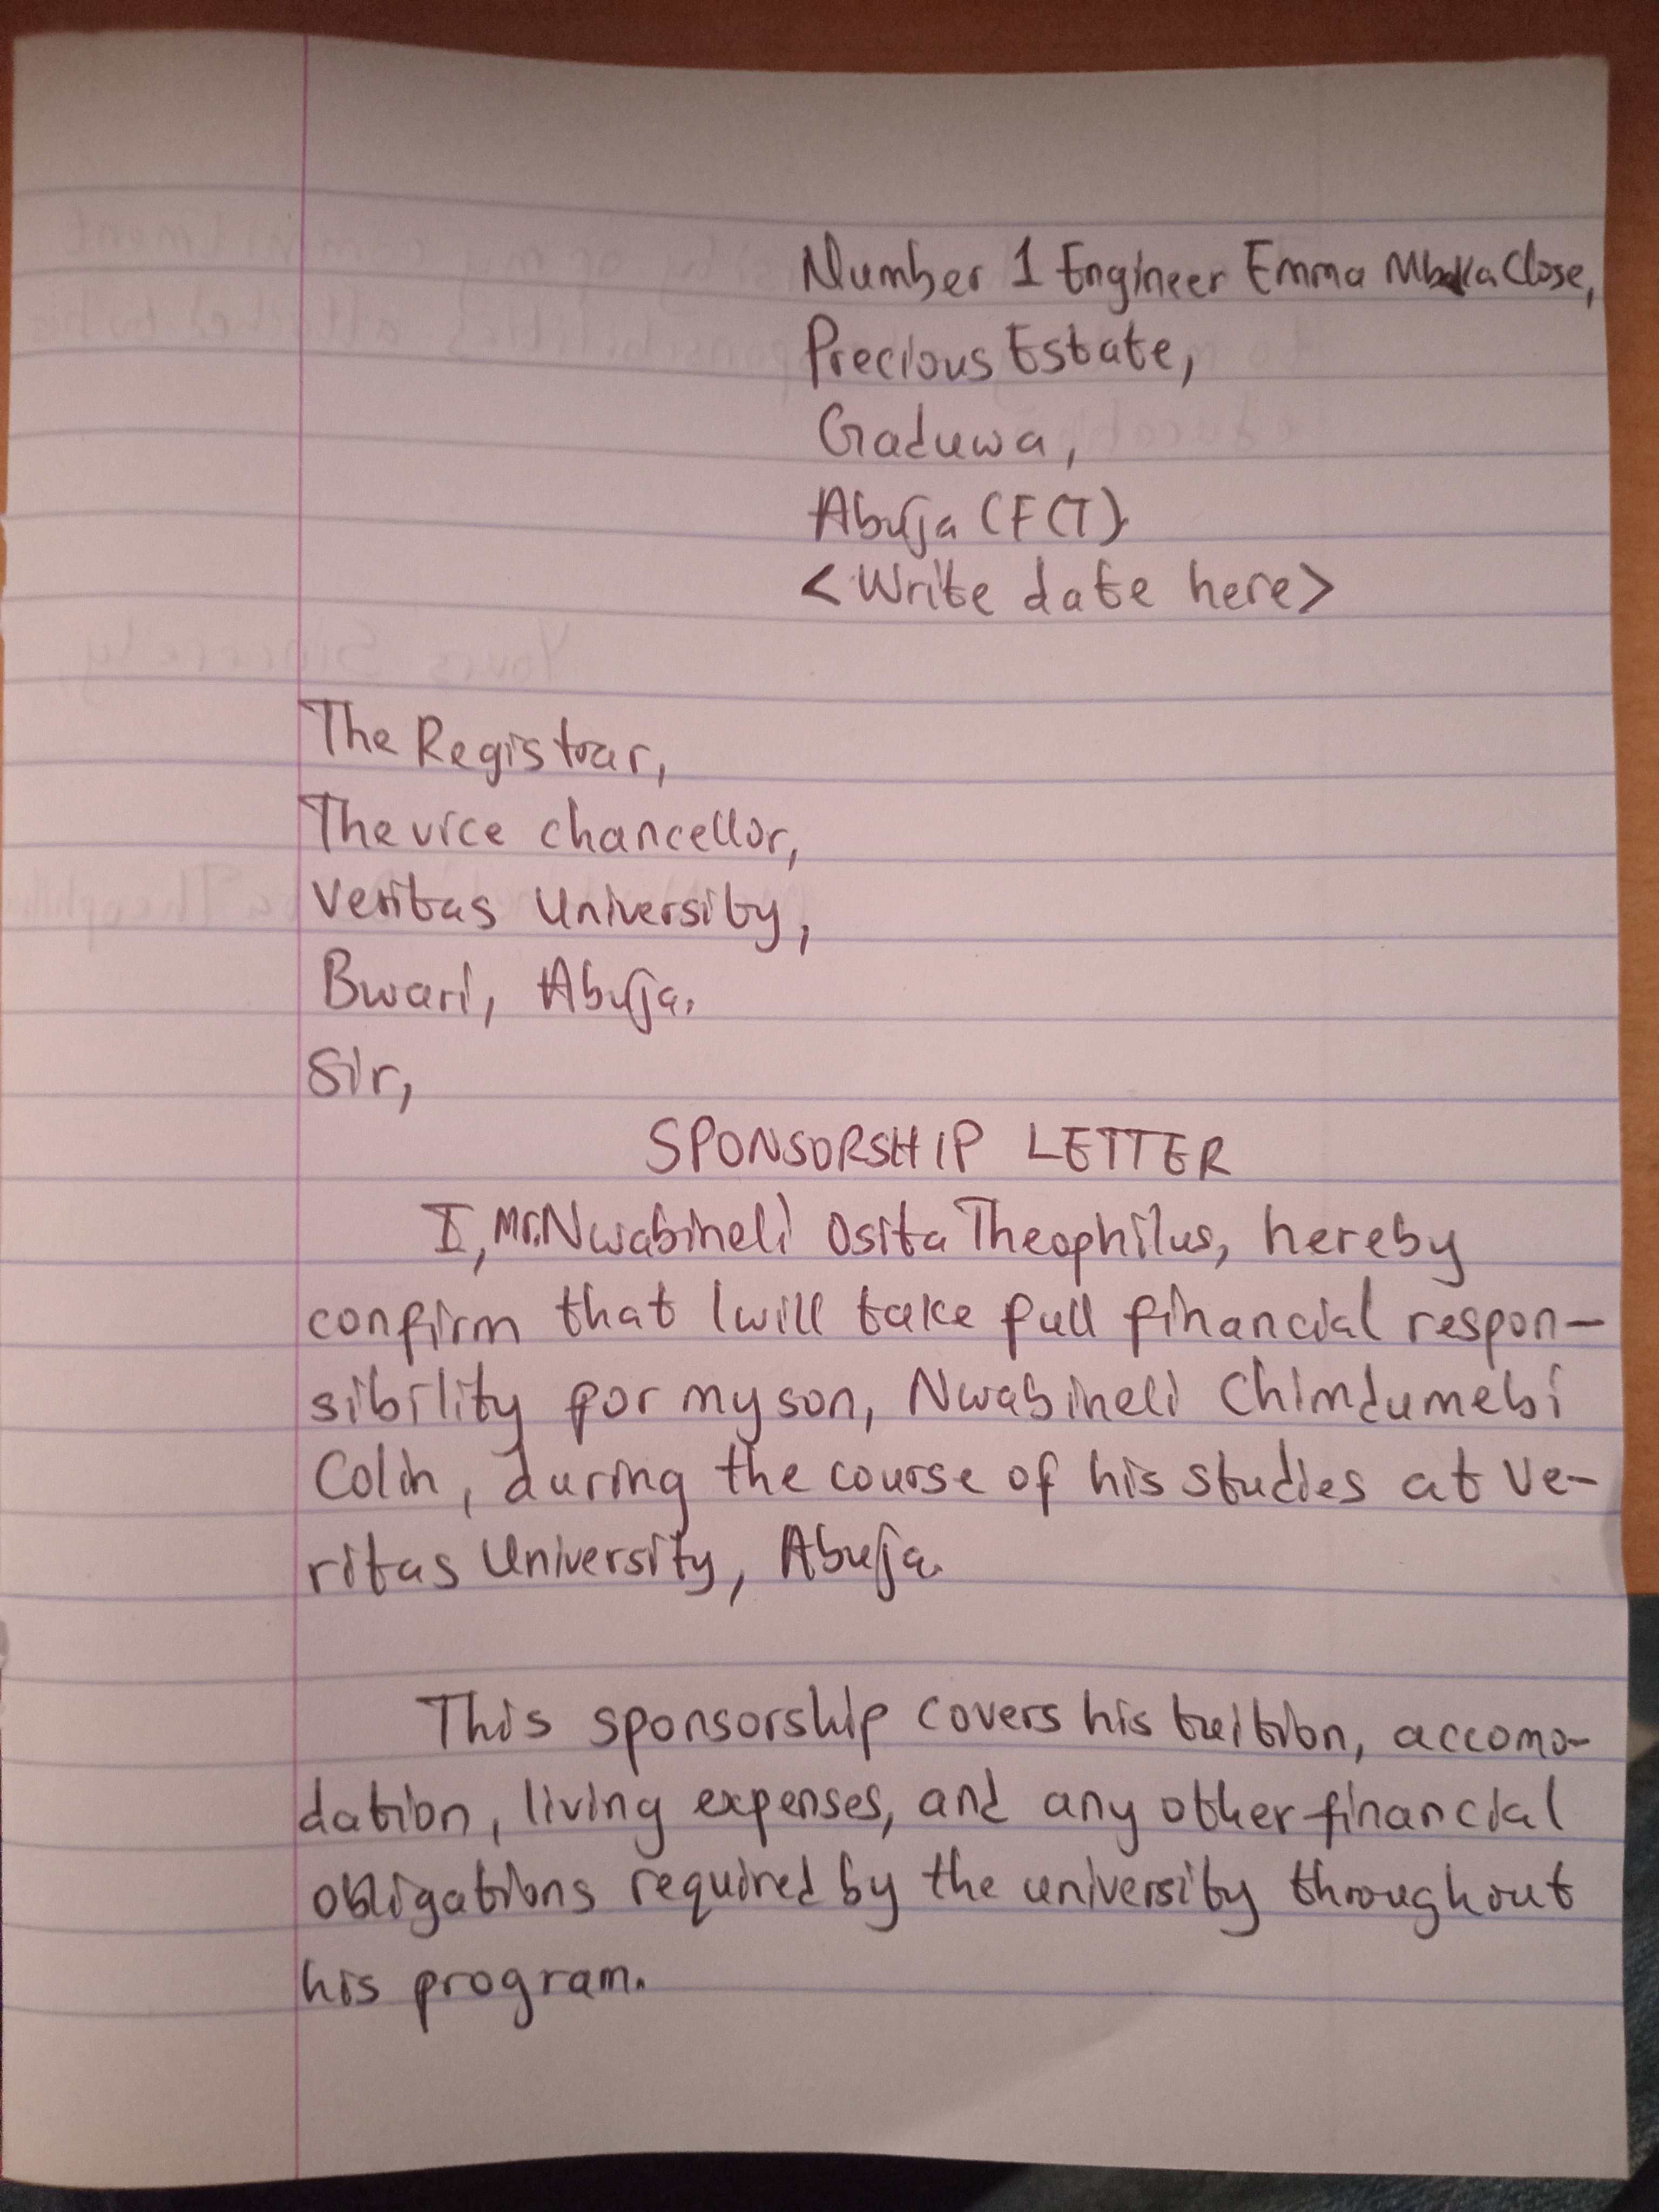 Number 1 Engineer Emma Close,
Precious Estate,
Gaduwa,
Abuja (FCT)
<Write date here>
The Registrar,
The vice chancellor,
Veritas University,
Bwari, Abuja.
Sir,
SPONSORSHIP LETTER
I, Mr. Nwabineli Osita Theophilus, hereby
confirm that I will take full financial respon-
sibility for my son, Nwabineli Chimdumebi
Colin, during the course of his studies at Ve-
ritas University, Abuja.
This sponsorship covers his tuition, accomo-
dation, living expenses, and any other financial
obligations required by the university throughout
his program.